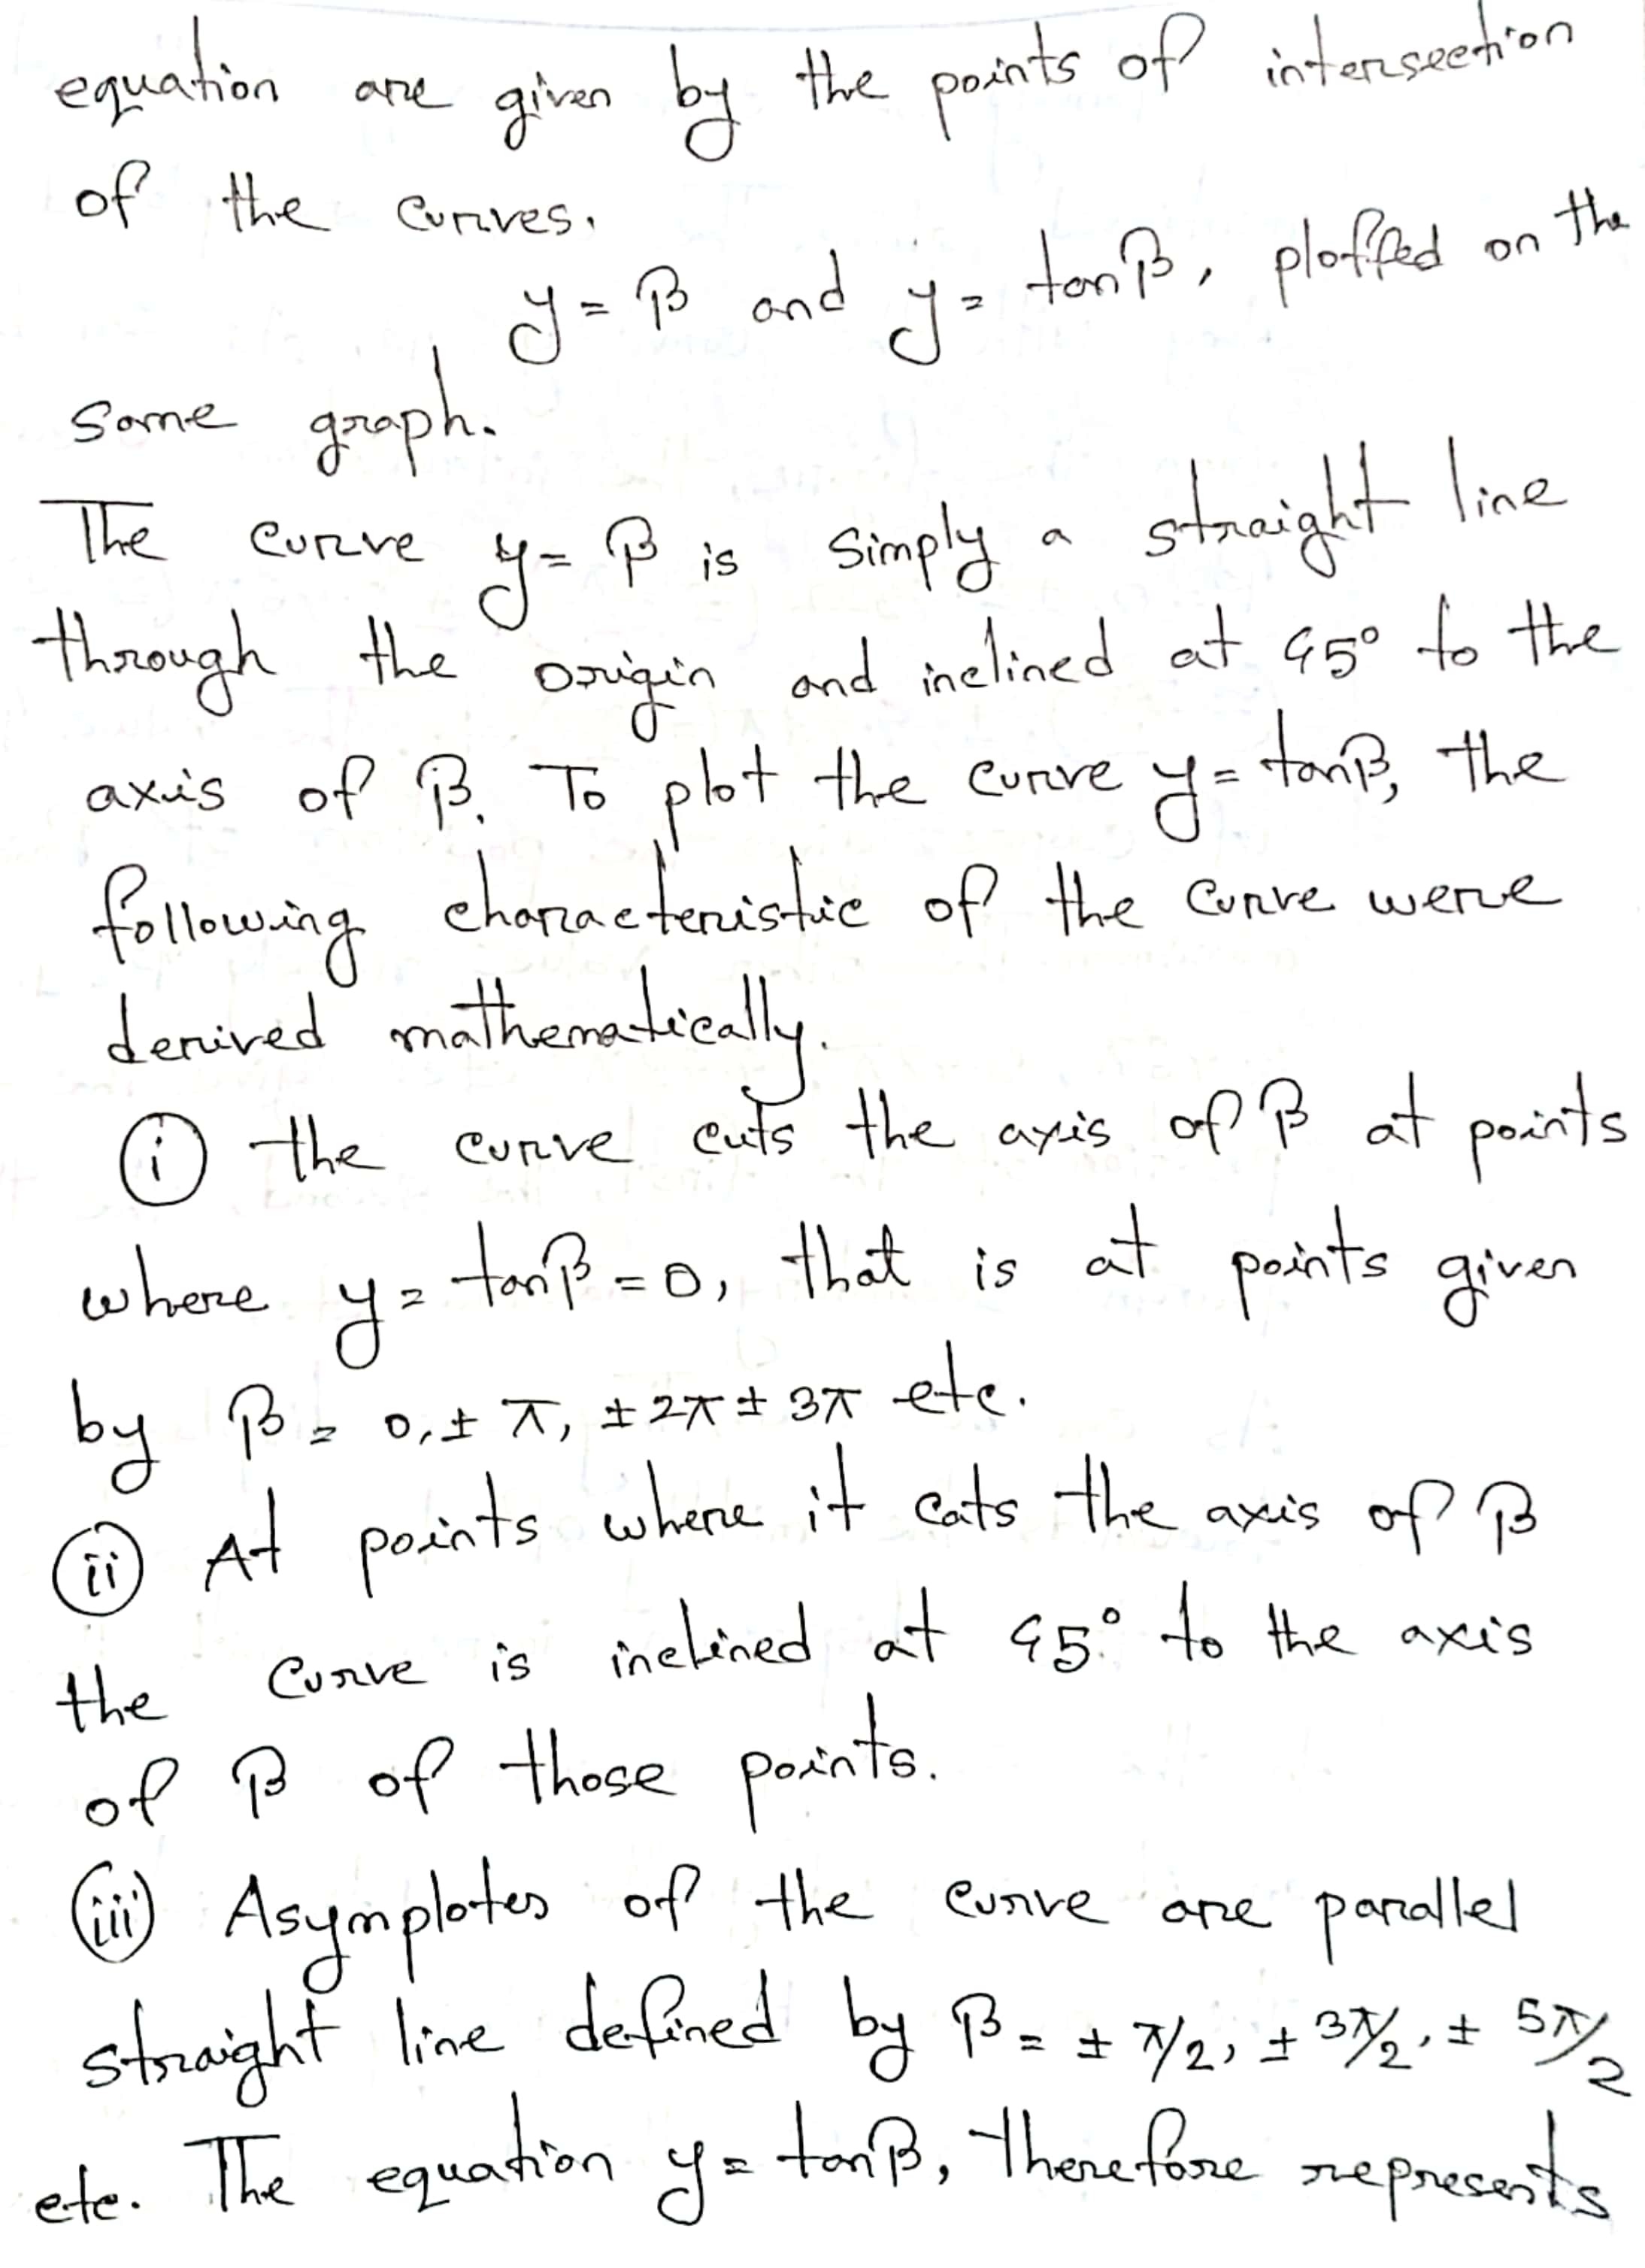 equation are given by the points of intersection
of the curves.
y = β and y = tanβ, plotted on the
same graph.
The curve y = β is simply a straight line
through the origin and inclined at 45° to the
axis of β. To plot the curve y = tanβ, the
following characteristic of the curve were
derived mathematically.
(i) the curve cuts the axis of β at points
where y = tanβ = 0, that is at points given
by β = 0, ± π, ± 2π ± 3π etc.
(ii) At points where it cats the axis of β
the curve is inclined at 45° to the axis
of β of those points.
(iii) Asymplotes of the curve are parallel
straight line defined by β = ± π/2, ± 3π/2, ± 5π/2
etc. The equation y = tanβ, therefore represents